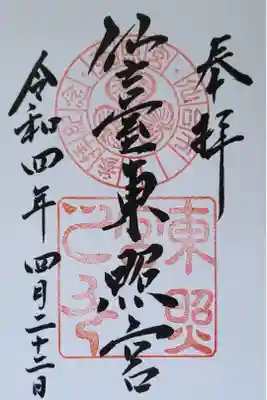 奉拝
仙臺東照宮
令和四年 四月二十二日